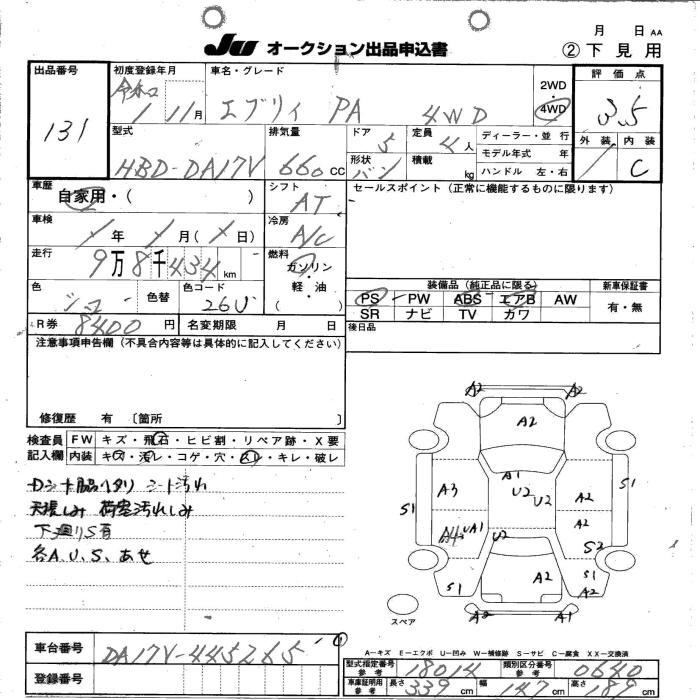 月 日 AA
Ju オークション出品申込書
② 下見用
出品番号
131
初度登録年月
令和 1 11月
車名・グレード
エブリィ PA 4WD
2WD
・
4WD
評価点
3.5
外装 内装
C
型式
HBD-DA17V
排気量
660 cc
ドア
5
形状
バン
定員
4 人
積載
kg
ディーラー・並行
モデル年式 年
ハンドル 左・右
車歴
自家用・( )
シフト
AT
セールスポイント(正常に機能するものに限ります)
車検
年 月( 日)
冷房
A/C
走行
9万8千434 km
燃料
ガソリン
・
軽油
( )
色
色替
色コード
26U
装備品(純正品に限る)
PS PW ABS エアB AW
SR ナビ TV カワ
新車保証書
有・無
R券
8400 円
名変期限 月 日
後日品
注意事項申告欄(不具合内容等は具体的に記入してください)
修復歴 有 〔箇所 〕
検査員
記入欄
FW キズ・飛石・ヒビ割・リペア跡・X要
内装 キズ・汚レ・コゲ・穴・ムレ・キレ・破レ
Dシート脇ヘタリ シート汚れ
天張しみ 荷室汚れしみ
下廻りS有
各A.U.S、あせ
A2 A2
A2
A1
U2
U2
A3
A2
S1
S1
A4
UA1
U2
A2
S2
S1
A2
S1
A2
A2 A1
スペア
車台番号
DA17V-445265
登録番号
A−キズ E−エクボ U−凹み W−補修跡 S−サビ C−腐食 XX−交換済
型式指定番号
参考
18014
類別区分番号
参考
0640
車庫証明用
参考
長さ 339 cm 幅 147 cm 高さ 89 cm